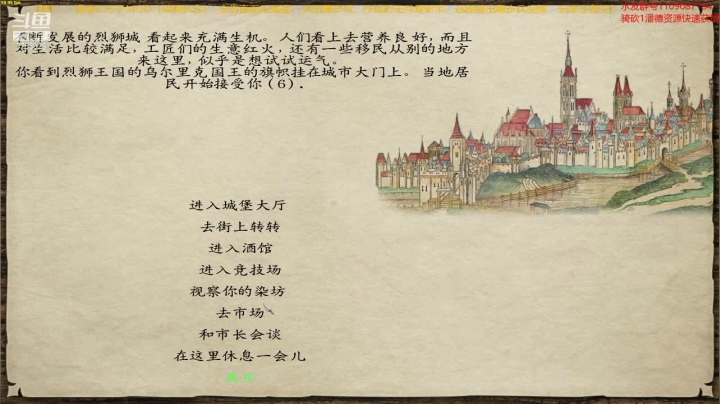 不断发展的烈狮城 看起来充满生机。人们看上去营养良好，而且
对生活比较满足，工匠们的生意红火，还有一些移民从别的地方
来这里，似乎是想试试运气。
你看到烈狮王国的乌尔里克国王的旗帜挂在城市大门上。当地居
民开始接受你(6).
进入城堡大厅
去街上转转
进入酒馆
进入竞技场
视察你的染坊
去市场
和市长会谈
在这里休息一会儿
离开
骑砍1潘德资源快速